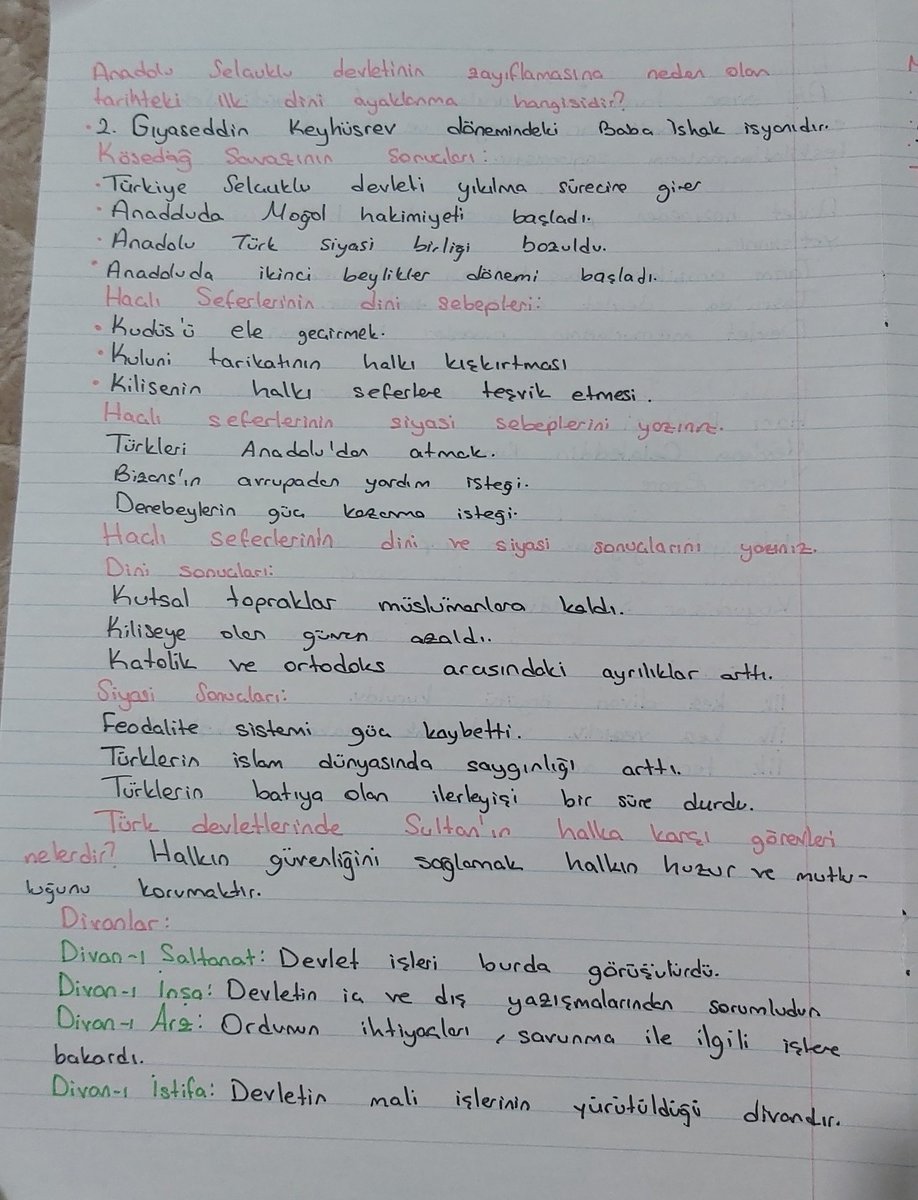 Anadolu Selcuklu devletinin zayıflamasına neden olan
tarihteki ilk dini ayaklanma hangisidir?
• 2. Gıyaseddin Keyhüsrev dönemindeki Baba Ishak isyonıdır.
Kösedağ Savaşının Sonuçları:
• Türkiye Selcuklu devleti yıkılma sürecine girer
• Anadduda Moğol hakimiyeti başladı.
• Anadolu Türk siyasi birligi bozuldu.
• Anadoluda ikinci beylikler dönemi başladı.
Haclı Seferlerinin dini sebepleri:
• Kudüs'ü ele geçirmek.
• Kuluni tarikatının halkı kışkırtması
• Kilisenin halkı seferlere teşvik etmesi.
Haclı seferlerinin siyasi sebeplerini yazınız.
Türkleri Anadolu'dan atmak.
Bizans'ın avrupadan yardım isteği.
Derebeylerin güç kazanma isteği.
Haclı seferlerinin dini ve siyasi sonuclarını yazınız.
Dini sonucları:
Kutsal topraklar müslümanlara kaldı.
Kiliseye olan güven azaldı.
Katolik ve ortodoks arasındaki ayrılıklar arttı.
Siyasi Sonucları:
Feodalite sistemi güç kaybetti.
Türklerin islam dünyasında saygınlığı arttı.
Türklerin batıya olan ilerleyişi bir süre durdu.
Türk devletlerinde Sultan'ın halka karşı görevleri
nelerdir? Halkın güvenliğini sağlamak halkın huzur ve mutlu-
luğunu korumaktır.
Divanlar:
Divan-ı Saltanat: Devlet işleri burda görüşülürdü.
Divan-ı İnşa: Devletin iç ve dış yazışmalarından sorumludur
Divan-ı Arz: Ordunun ihtiyaçları, savunma ile ilgili işlere
bakardı.
Divan-ı İstifa: Devletin mali işlerinin yürütüldüğü divandır.